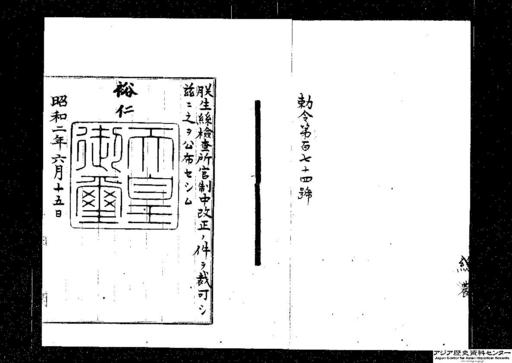 勅令第百七十四號
朕生絲檢査所官制中改正ノ件ヲ裁可シ
茲ニ之ヲ公布セシム
裕仁
天皇御璽
昭和二年六月十五日
アジア歴史資料センター
Japan Center for Asian Historical Records